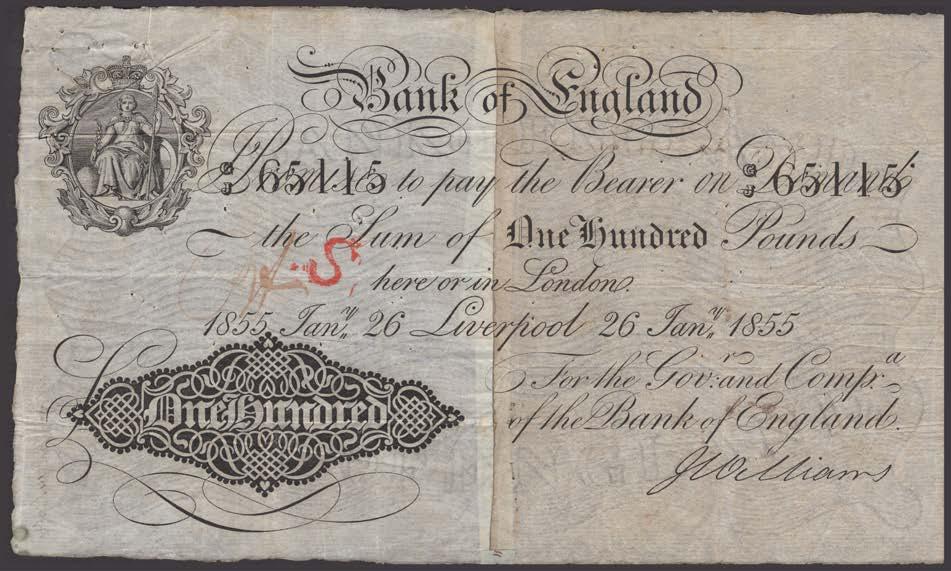 Bank of England
Promise to pay the Bearer on Demand
65115 65115
the Sum of One Hundred Pounds
here or in London.
S
1855 Janʸ 26 Liverpool 26 Janʸ 1855
For the Govʳ: and Compᵃ
of the Bank of England.
One Hundred
J Williams